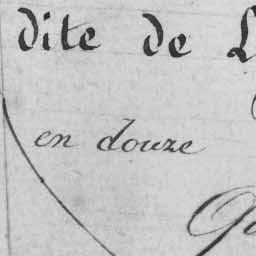 dite de L
en douze